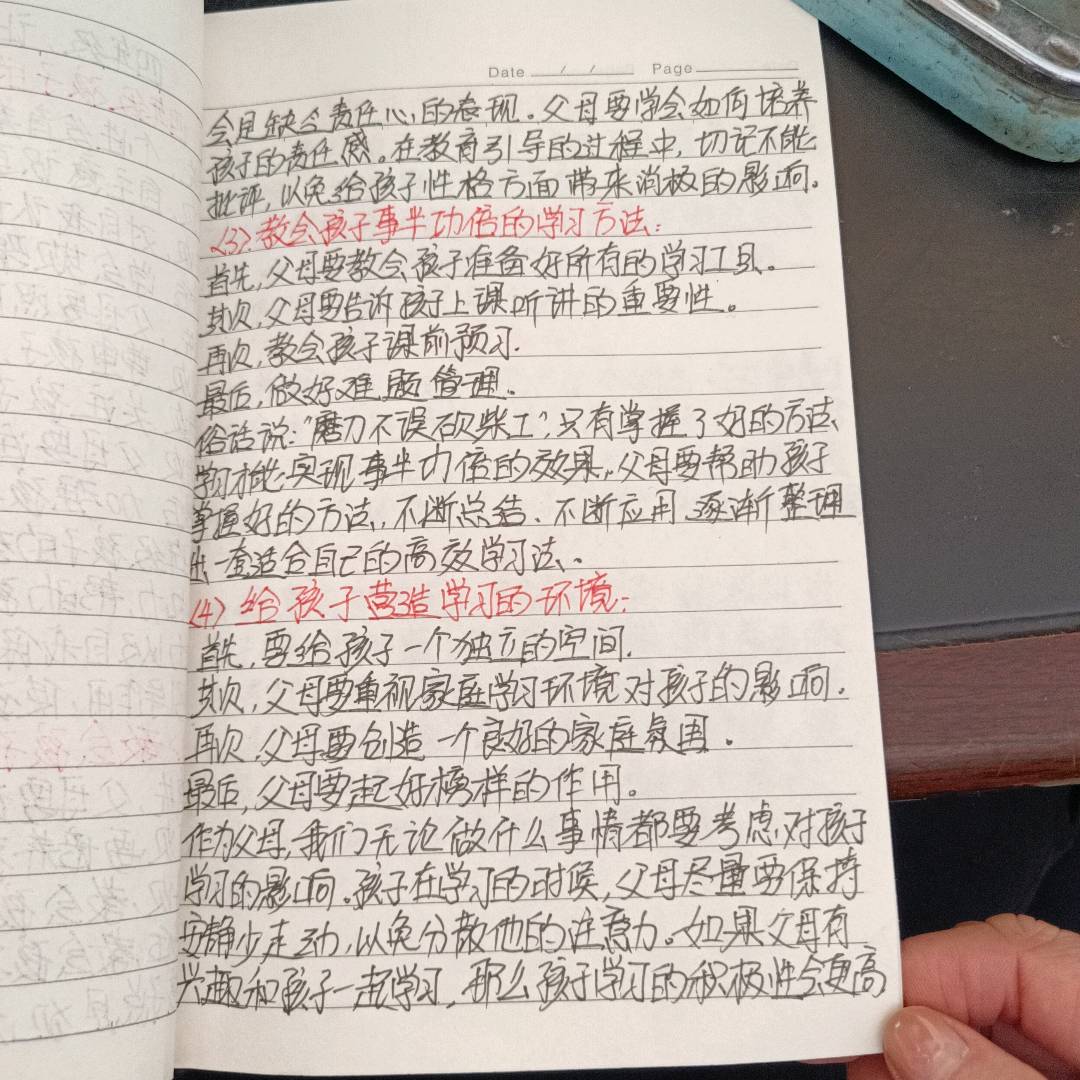 Date / / Page
会是缺乏责任心的表现。父母要学会如何培养
孩子的责任感。在教育引导的过程中,切记不能
批评,以免给孩子性格方面带来消极的影响。
(3).教会孩子事半功倍的学习方法:
首先,父母要教会孩子准备好所有的学习工具。
其次,父母要告诉孩子上课听讲的重要性。
再次,教会孩子课前预习.
最后,做好难题管理.
俗话说:“磨刀不误砍柴工”,只有掌握了好的方法,
学习才能实现事半功倍的效果,父母要帮助孩子
掌握好的方法,不断总结、不断应用,逐渐整理
出一套适合自己的高效学习法。
(4)给孩子营造学习的环境:
首先,要给孩子一个独立的空间.
其次,父母要重视家庭学习环境对孩子的影响.
再次,父母要创造一个良好的家庭氛围.
最后,父母要起好榜样的作用。
作为父母,我们无论做什么事情都要考虑对孩子
学习的影响。孩子在学习的时候,父母尽量要保持
安静少走动,以免分散他的注意力。如果父母有
兴趣和孩子一起学习,那么孩子学习的积极性会更高